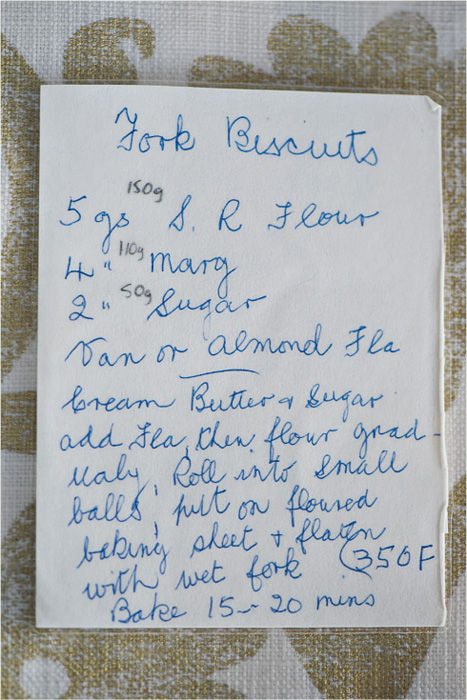 Fork Biscuits
150g
5 ozs S. R Flour
4 " 110g Marg
2 " 50g Sugar
Van or almond Fla
Cream Butter & Sugar
add Fla, then flour grad-
ualy, Roll into small
balls, put on floured
baking sheet & flaten
with wet fork (350F
Bake 15-20 mins